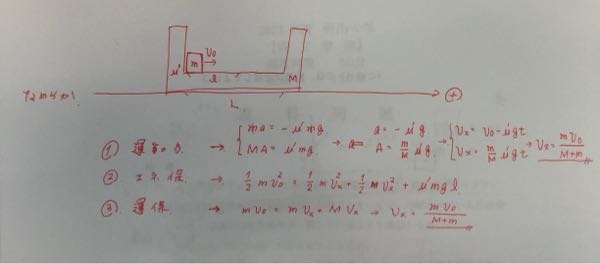 v₀
m
μ'
l
M
L
⊕
① 運 → { ma = -μ'mg. MA = μ'mg → a = a = -μ'g. A = m/M μ'g. → { Vx = v₀ - μ'gt Vx = m/M μ'gt → Vx = mv₀/M+m
② エネ保. → 1/2 mv₀² = 1/2 mVx² + 1/2 mVx² + μ'mgl
③ 運保 → mv₀ = mVx + MVx → Vx = mv₀/M+m